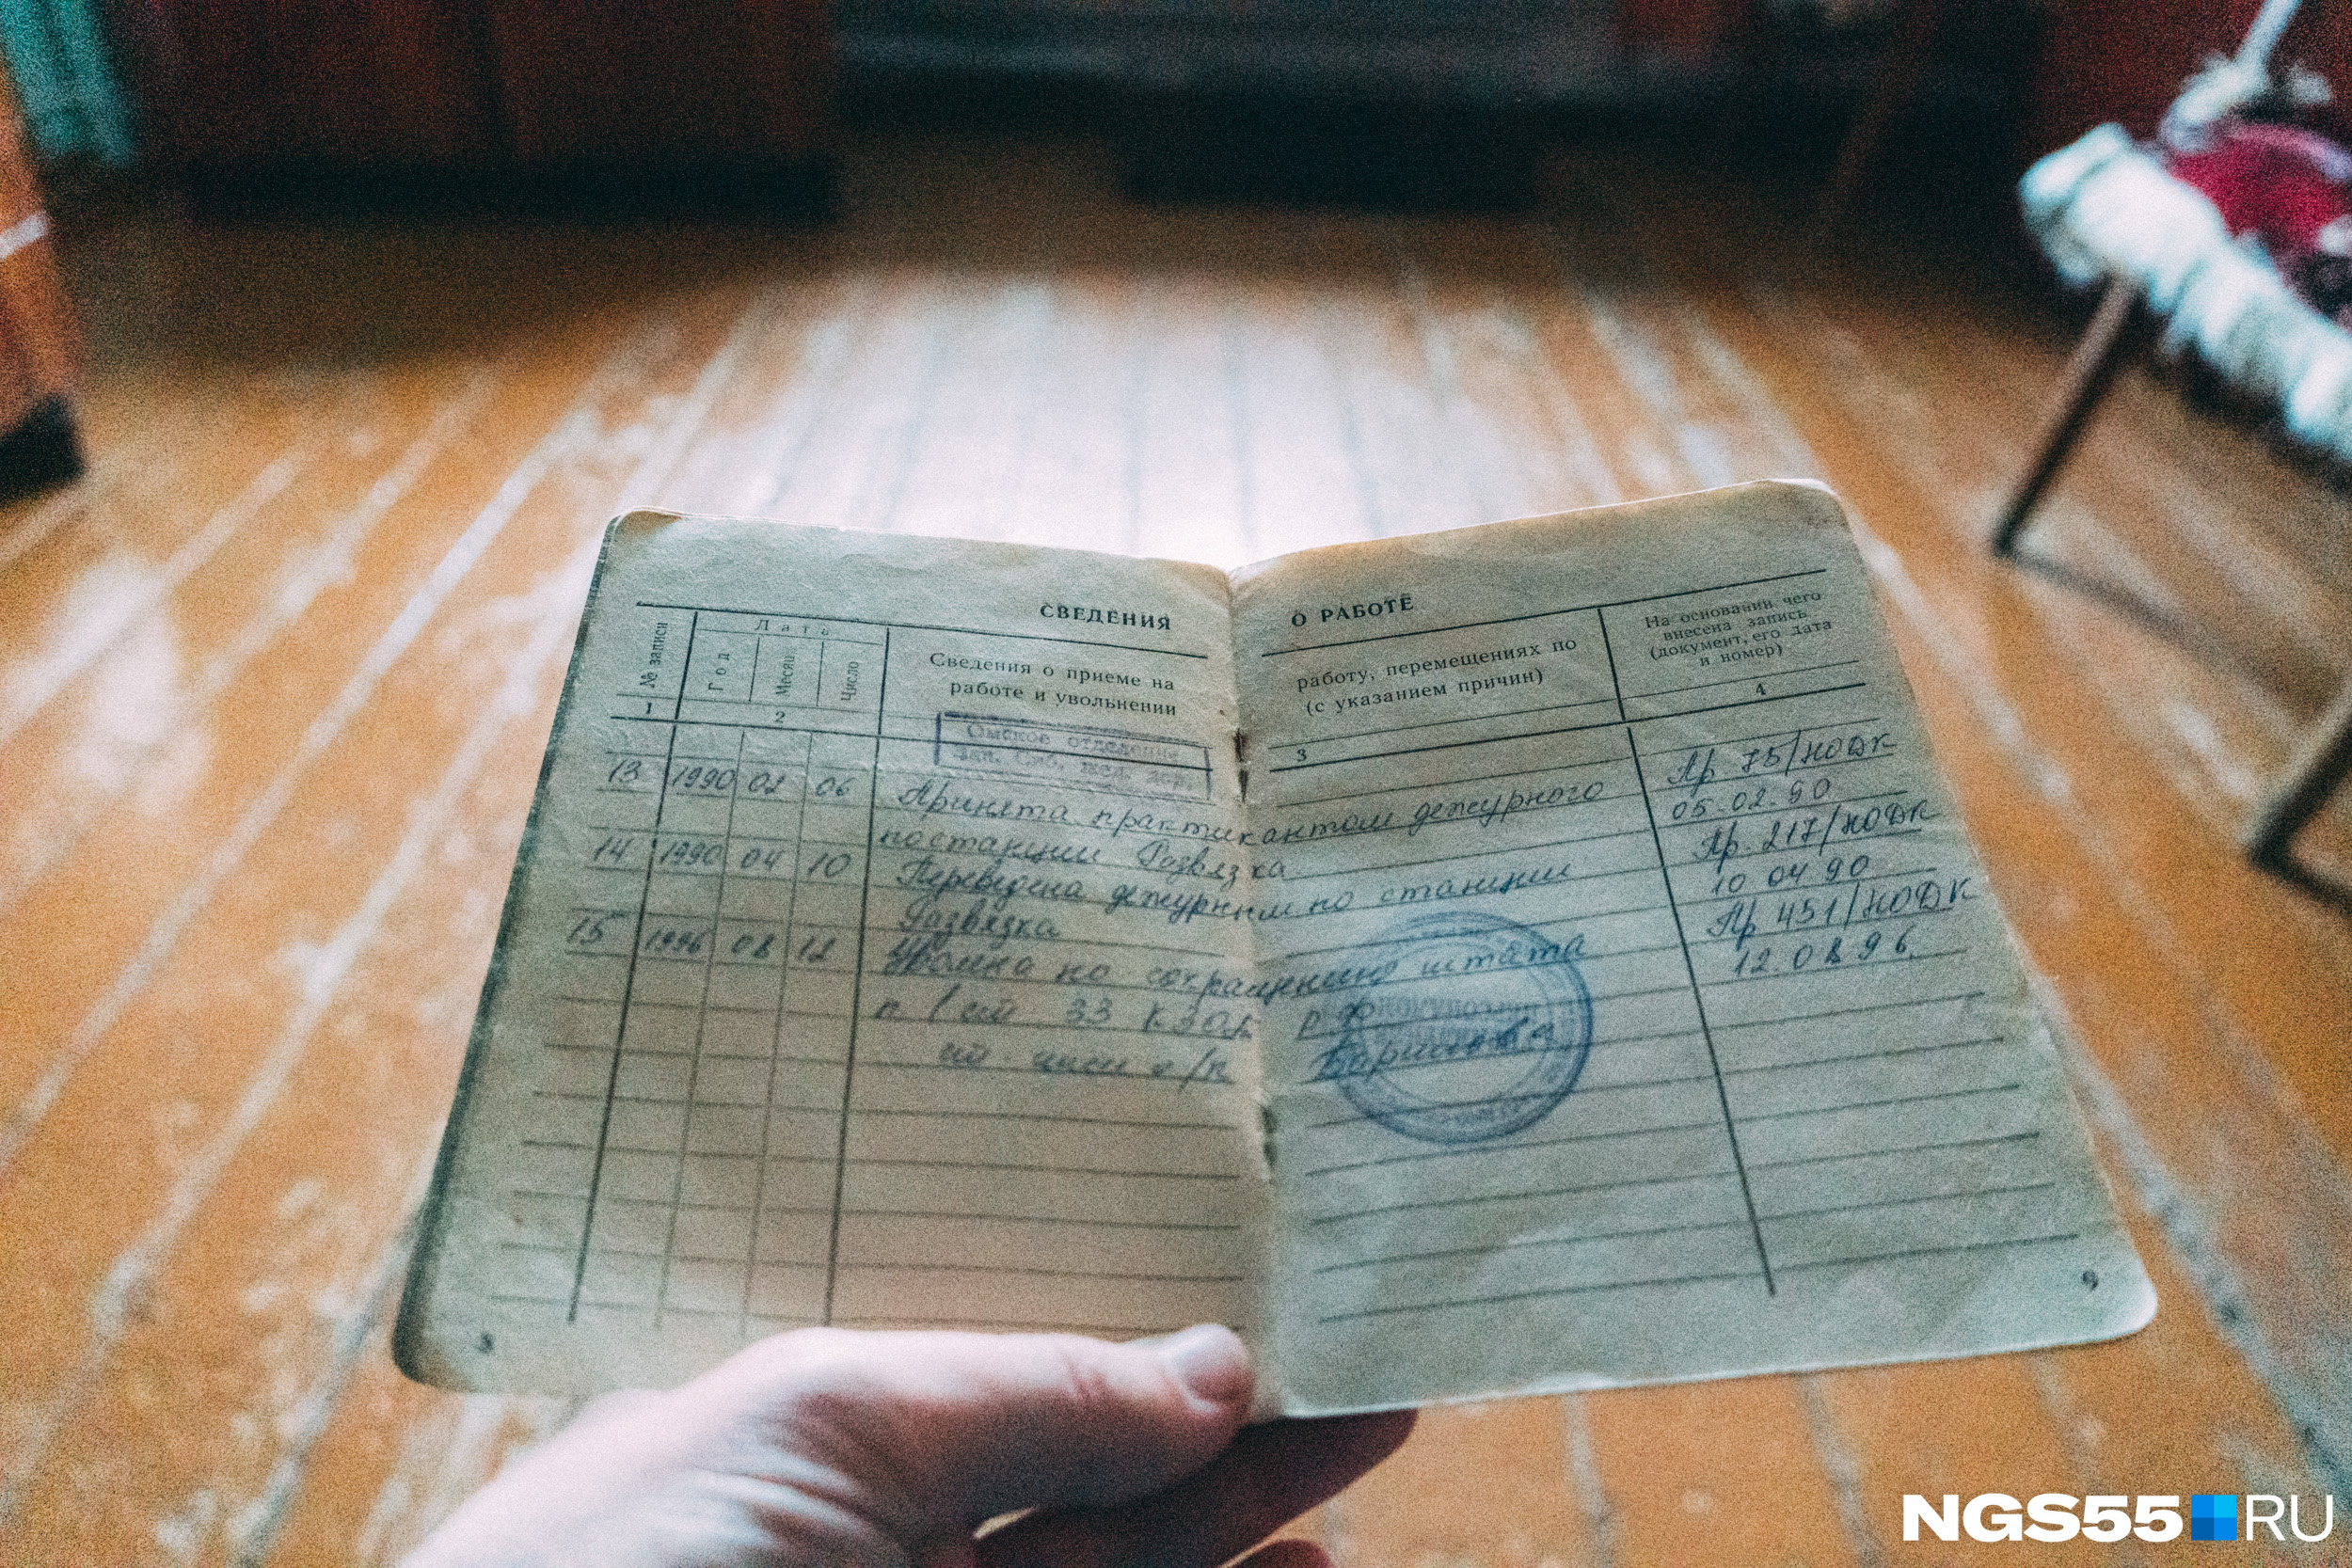 СВЕДЕНИЯ О РАБОТЕ
№ записи
Дата
Год
Месяц
Число
Сведения о приеме на работу, перемещениях по
работе и увольнении (с указанием причин)
На основании чего
внесена запись
(документ, его дата
и номер)
1 2 3 4
Омское отделение
Зап. Сиб. жел. дор.
13 1990 02 06 Принята практикантом дежурного Пр 75/НОДК
по станции Развязка 05-02-90
14 1990 04 10 Переведена дежурным по станции Пр. 217/НОДК
Развязка 10 04 90
15 1996 08 12 Уволена по сокращению штата Пр 451/НОДК
п 1 ст 33 КЗОТ РФ 12.08.96.
9
NGS55 RU